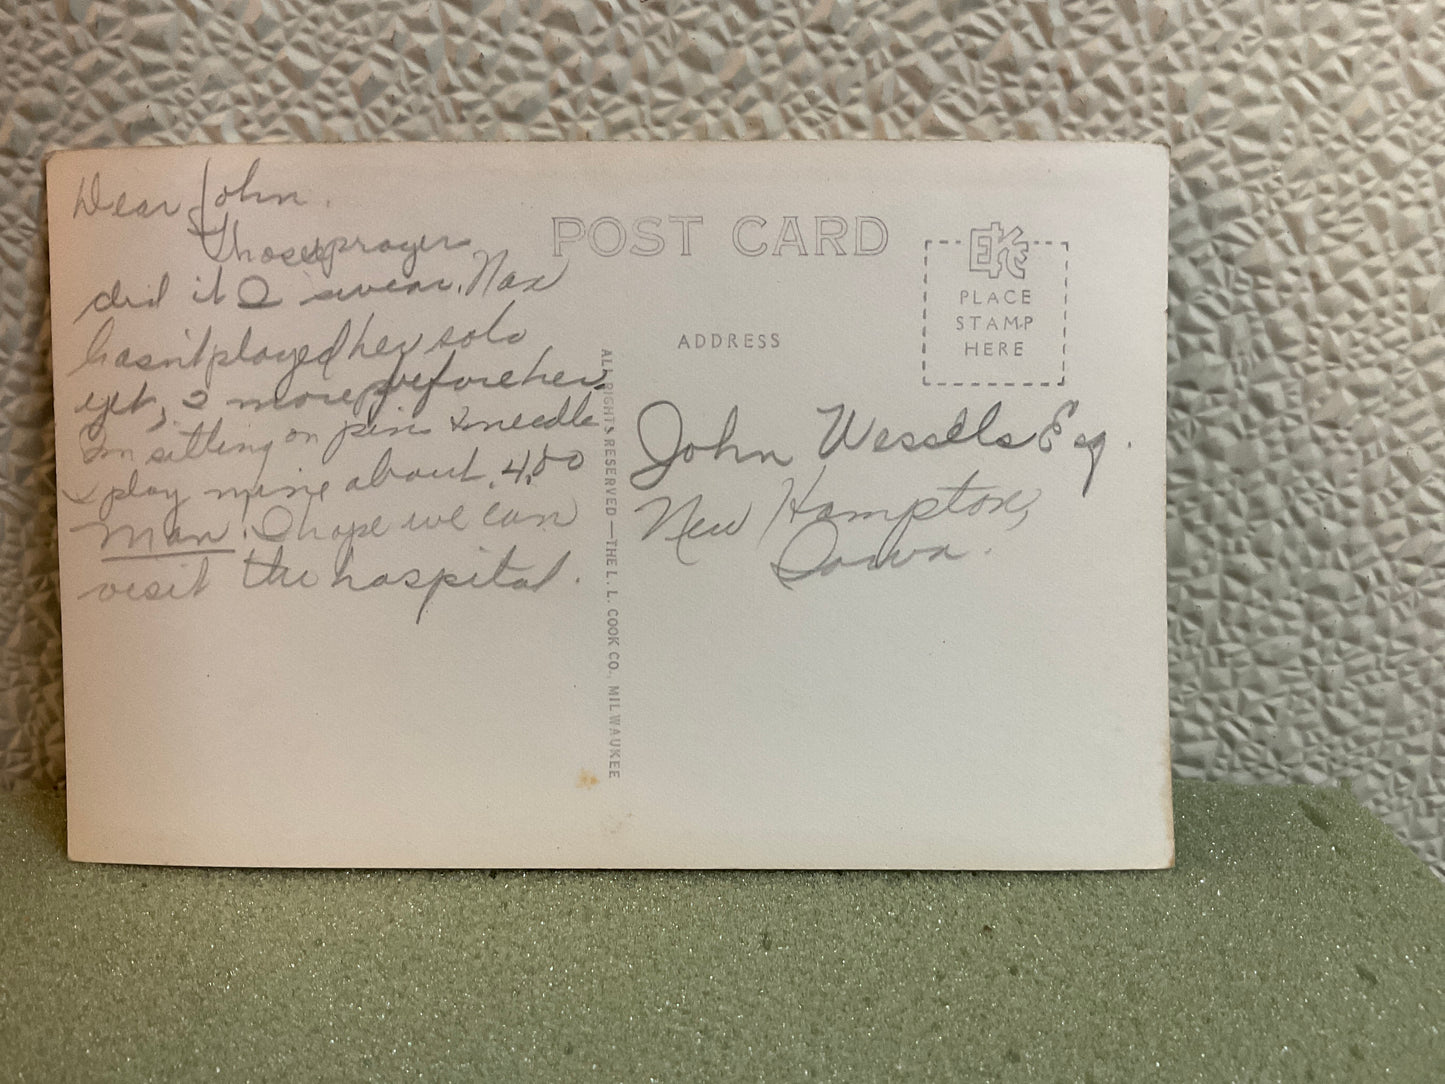 Dear John.
Those prayers
did it I swear. Max
hasn't played her solo
yet, 2 more before her.
Im sitting on pins & needle
I play mine about. 4,00
Man. I hope we can
visit the hospital.
POST CARD
EKC
PLACE
STAMP
HERE
ADDRESS
John Wessels Esq.
New Hampton,
Iowa.
ALL RIGHTS RESERVED—THE L. L. COOK CO., MILWAUKEE